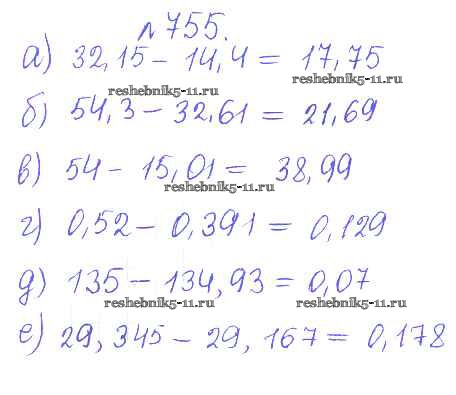 №755.
а) 32,15 - 14,4 = 17,75
reshebnik5-11.ru reshebnik5-11.ru
б) 54,3 - 32.61 = 21,69
в) 54 - 15,01 = 38,99
reshebnik5-11.ru
г) 0,52 - 0,391 = 0,129
д) 135 - 134,93 = 0,07
reshebnik5-11.ru reshebnik5-11.ru
е) 29,345 - 29,167 = 0,178